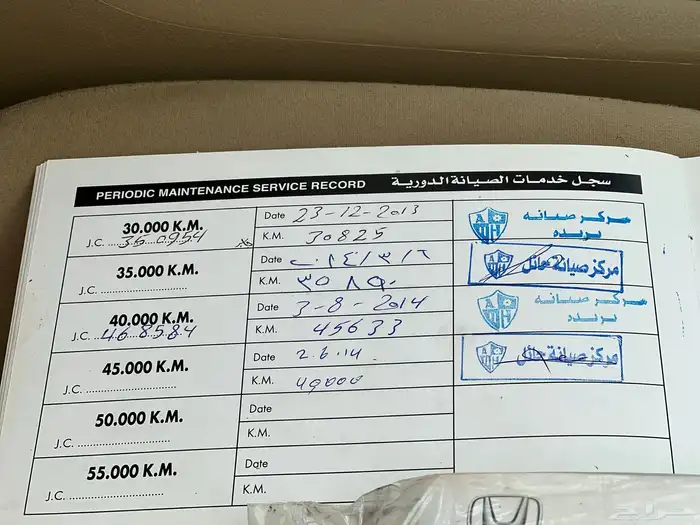 PERIODIC MAINTENANCE SERVICE RECORD سجل خدمات الصيانة الدورية
30.000 K.M.
J.C. 360954
Date 23-12-2013
K.M. 30825
مركز صيانه
بريده
35.000 K.M.
J.C.
Date
K.M. ٣٥٨٥٠
مركز صيانة حائل
40.000 K.M.
J.C. 468584
Date 3-8-2014
K.M. 45633
مركز صيانه
بريده
45.000 K.M.
J.C.
Date 2.6.14
K.M. 40000
مركز صيانة حائل
50.000 K.M.
J.C.
Date
K.M.
55.000 K.M.
J.C.
Date
K.M.
حراج